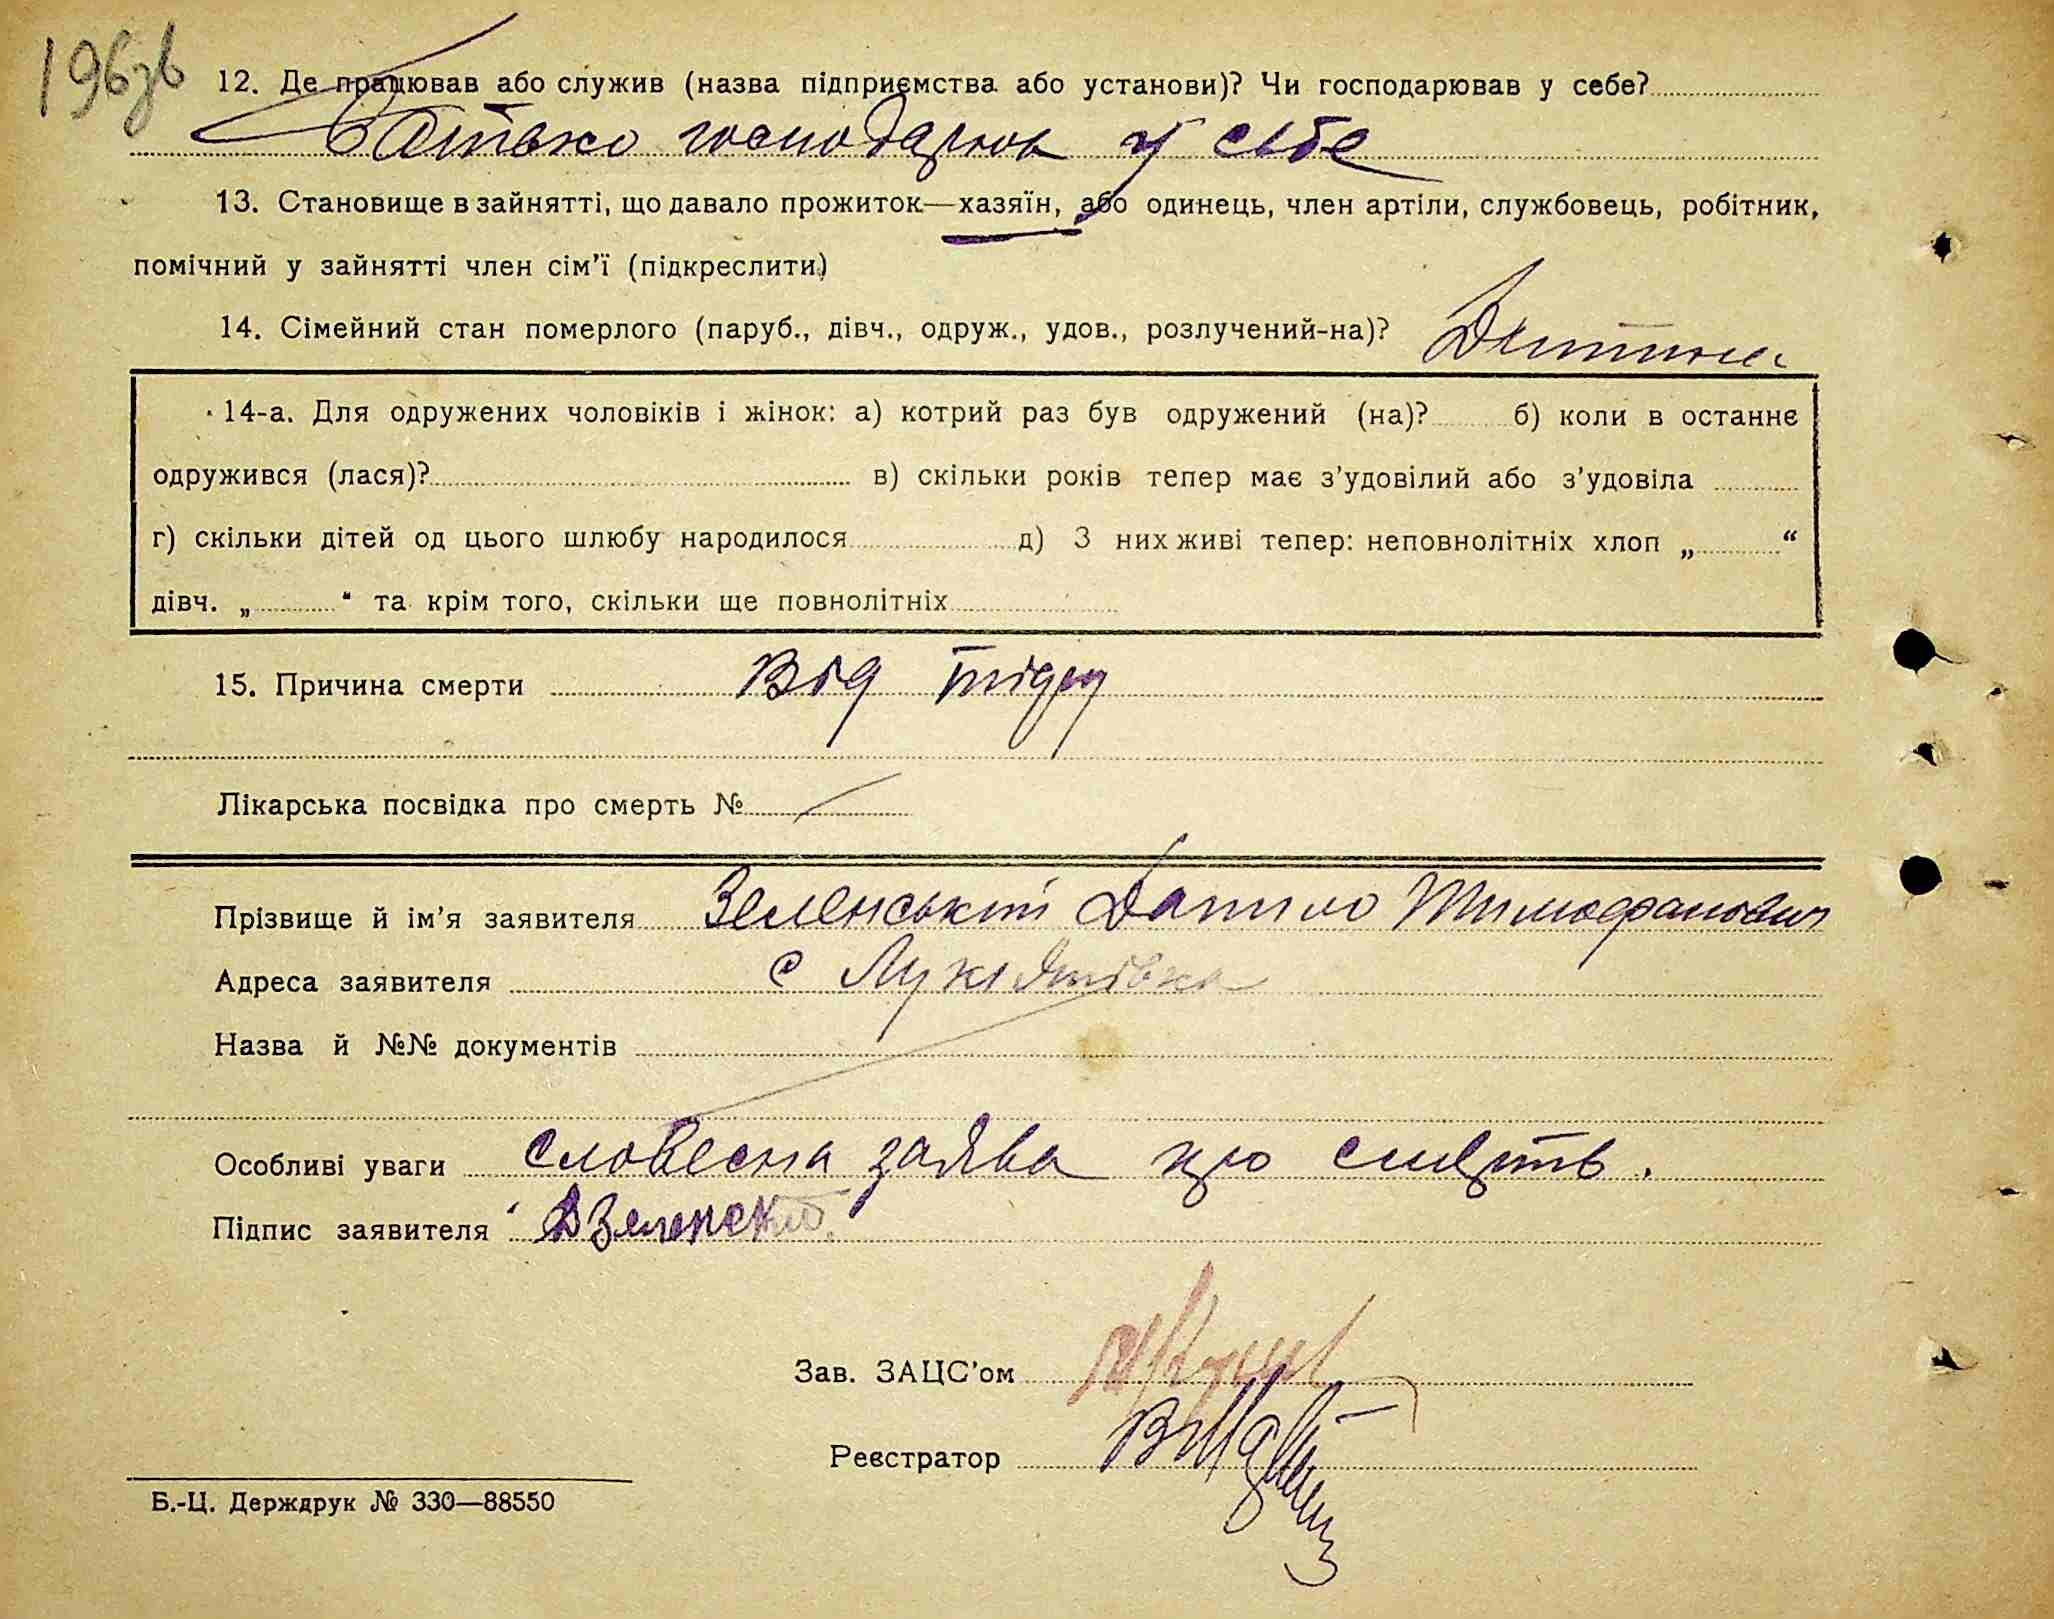 196зв
12. Де працював або служив (назва підприємства або установи)? Чи господарював у себе?
Батько господарюв у себе
13. Становище в зайнятті, що давало прожиток—хазяїн, або одинець, член артіли, службовець, робітник,
помічний у зайнятті член сім'ї (підкреслити)
14. Сімейний стан померлого (паруб., дівч., одруж., удов., розлучений-на)? Дитина
14-а. Для одружених чоловіків і жінок: а) котрий раз був одружений (на)? б) коли в останнє
одружився (лася)? в) скільки років тепер має з'удовілий або з'удовіла
г) скільки дітей од цього шлюбу народилося д) З них живі тепер: неповнолітніх хлоп „ “
дівч. „ “ та крім того, скільки ще повнолітніх
15. Причина смерти Від
Лікарська посвідка про смерть №
Прізвище й ім'я заявителя Зеленський Данило Тимофанович
Адреса заявителя с Лукіянівка
Назва й №№ документів
Особливі уваги словесна заява про смерть.
Підпис заявителя ДЗеленский
Зав. ЗАЦС'ом
Реєстратор
Б.-Ц. Держдрук № 330—88550